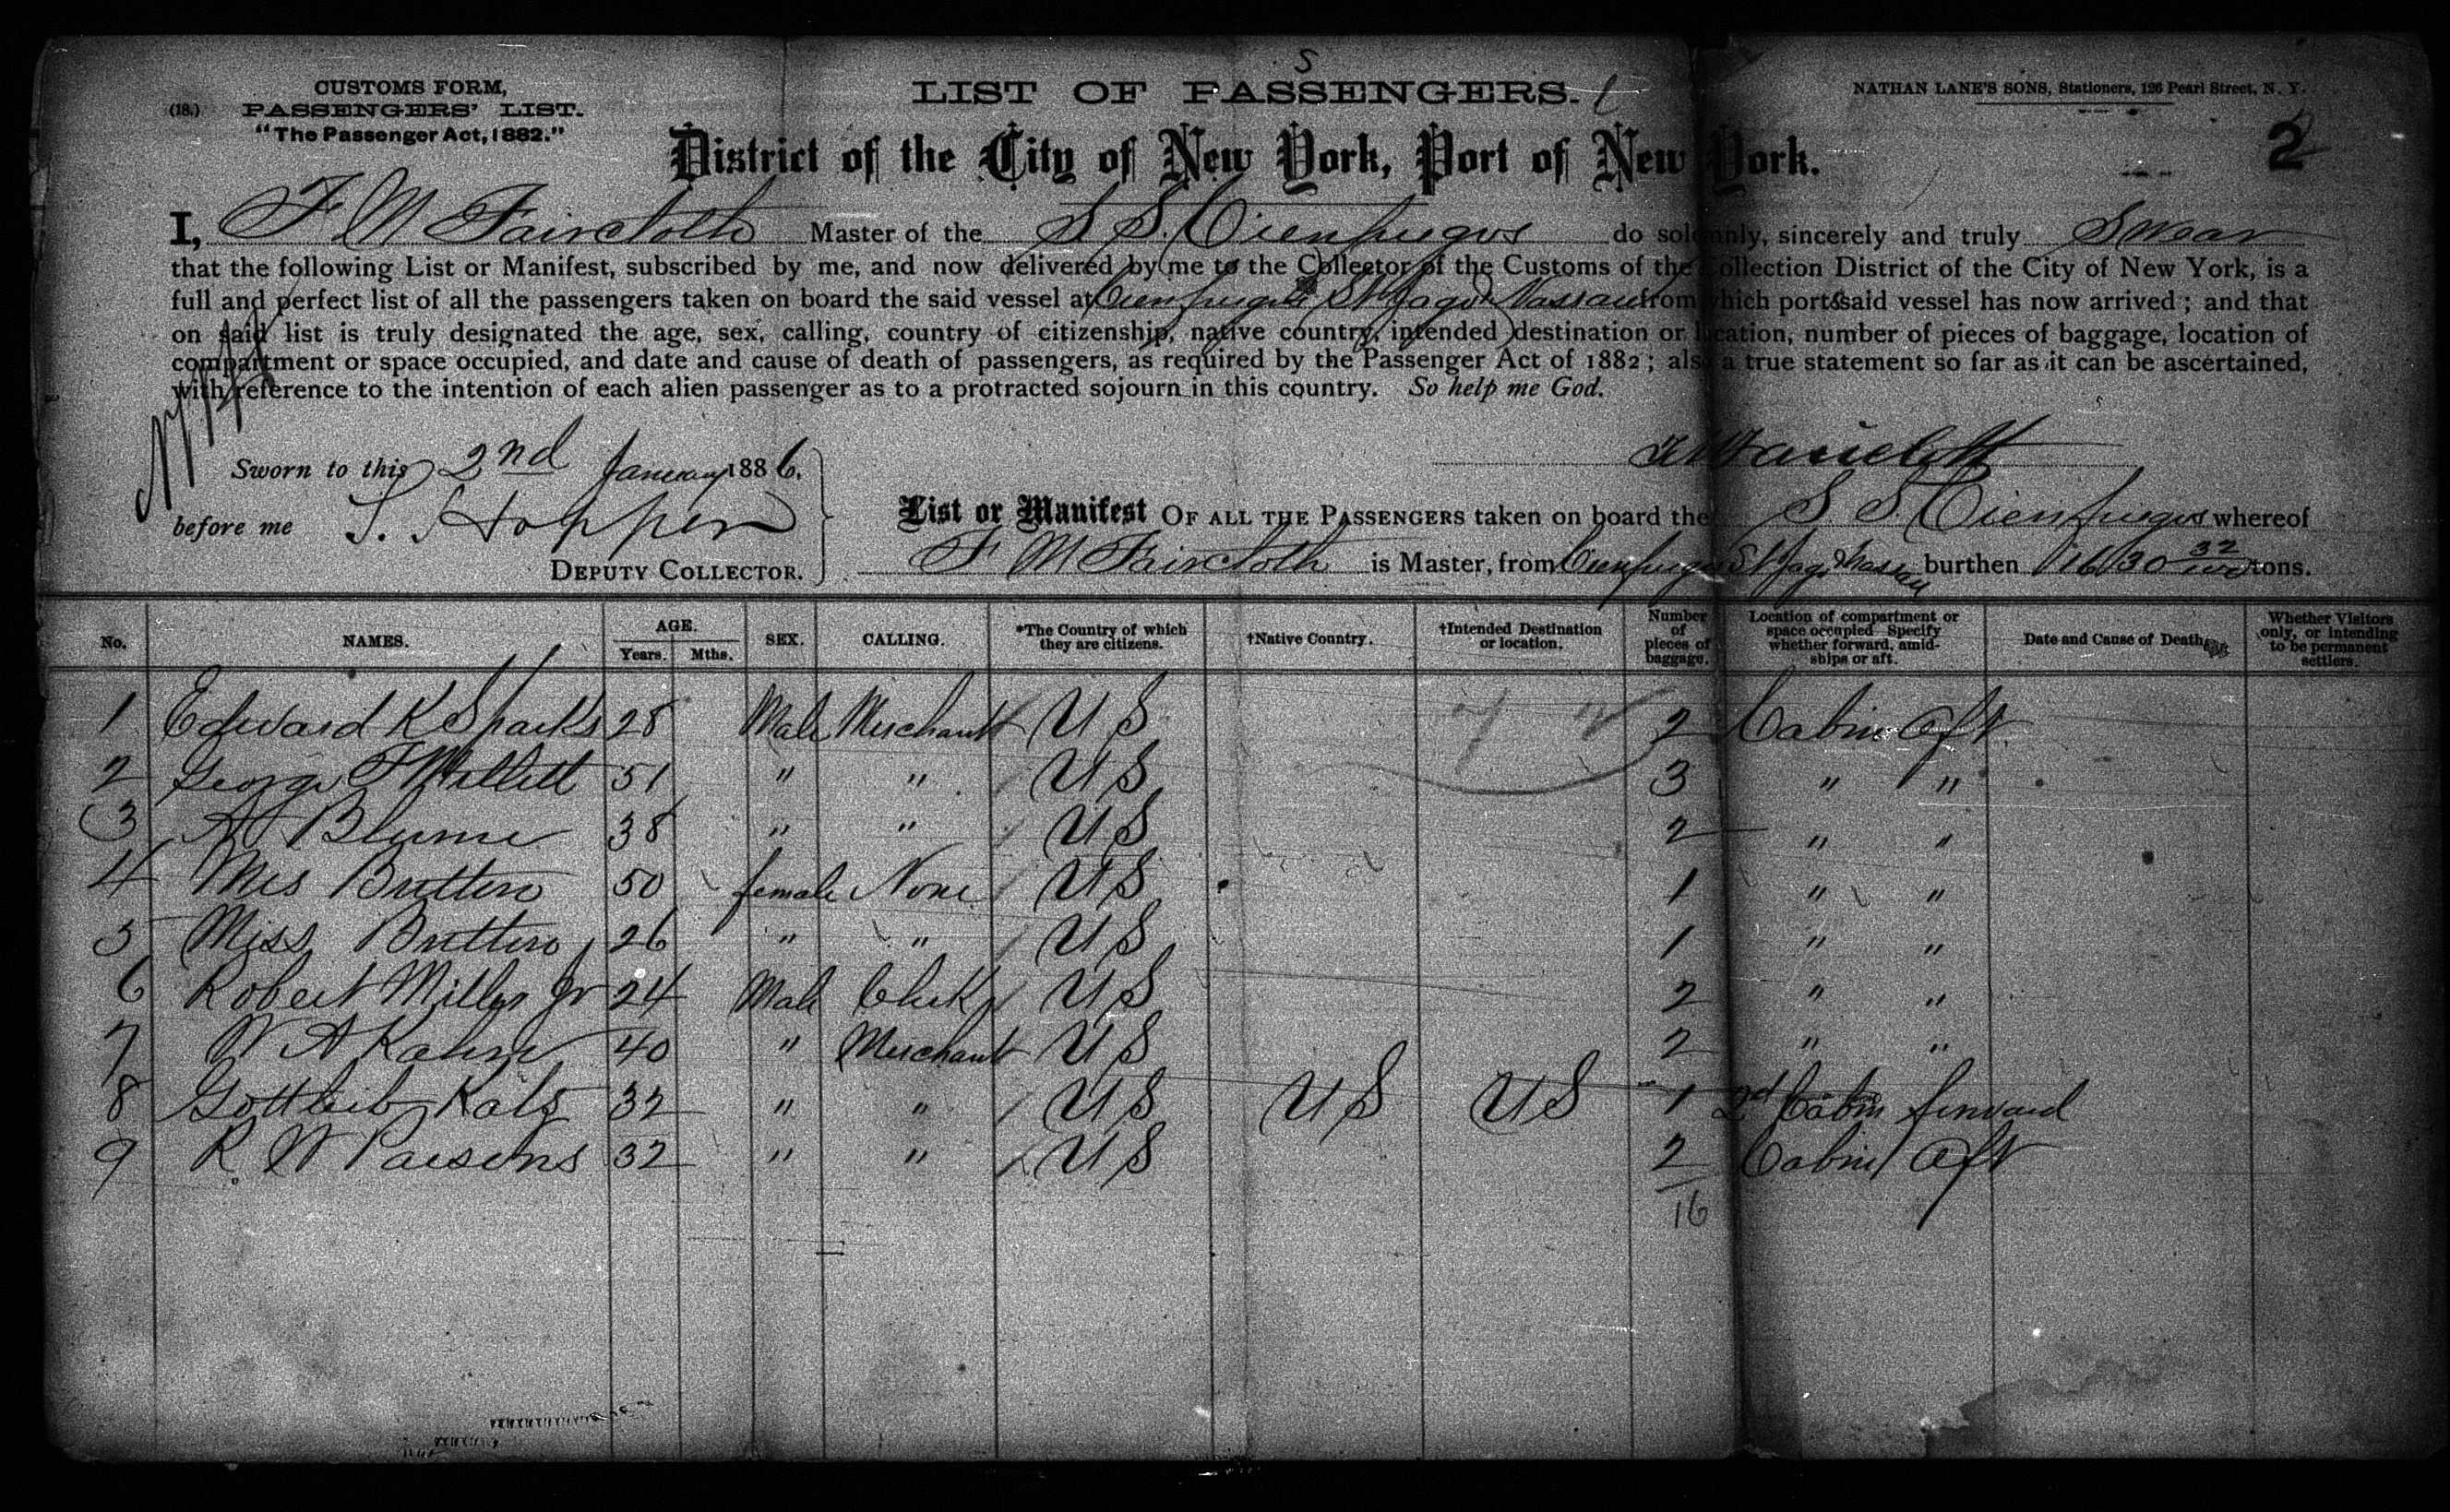 CUSTOMS FORM,
(18.) PASSENGERS' LIST.
"The Passenger Act, 1882."
LIST OF PASSENGERS.
NATHAN LANE'S SONS, Stationers, 126 Pearl Street, N. Y.
2
District of the City of New York, Port of New York.
I, F. M Faircloth Master of the S. S. Cienfuegos do solemnly, sincerely and truly Swear
that the following List or Manifest, subscribed by me, and now delivered by me to the Collector of the Customs of the Collection District of the City of New York, is a
full and perfect list of all the passengers taken on board the said vessel at Cienfuegos St Jago & Nassau from which ports said vessel has now arrived; and that
on said list is truly designated the age, sex, calling, country of citizenship, native country, intended destination or location, number of pieces of baggage, location of
compartment or space occupied, and date and cause of death of passengers, as required by the Passenger Act of 1882; also a true statement so far as it can be ascertained,
with reference to the intention of each alien passenger as to a protracted sojourn in this country. So help me God.
F M Faircloth
Sworn to this 2nd January 1886.
before me S. Hopper
DEPUTY COLLECTOR.
List or Manifest OF ALL THE PASSENGERS taken on board the S. S Cienfuegos whereof
F M Faircloth is Master, from Cienfuegos St Jago & Nassau burthen tons.
No. NAMES. AGE. Years. Mths. SEX. CALLING. *The Country of which they are citizens. †Native Country. †Intended Destination or location. Number of pieces of baggage. Location of compartment or space occupied Specify whether forward, amid-ships or aft. Date and Cause of Death. Whether Visitors only, or intending to be permanent settlers.
1 Edward K Sparks 28 Male Merchant U S 2 Cabin Aft
2 George F Millett 51 " " U S 3 " "
3 A Blume 38 " " U S 2 " "
4 Mrs Britten 50 female None U S 1 " "
5 Miss Britten 26 " " U S 1 " "
6 Robert Miller Jr 24 Male Clerk U S 2 " "
7 W A Kahn 40 " Merchant U S 2 " "
8 Gottlieb Kalz 32 " " U S U S U S 1 2d Cabin forward
9 R. W Parsons 32 " " U S 2 Cabin Aft
16